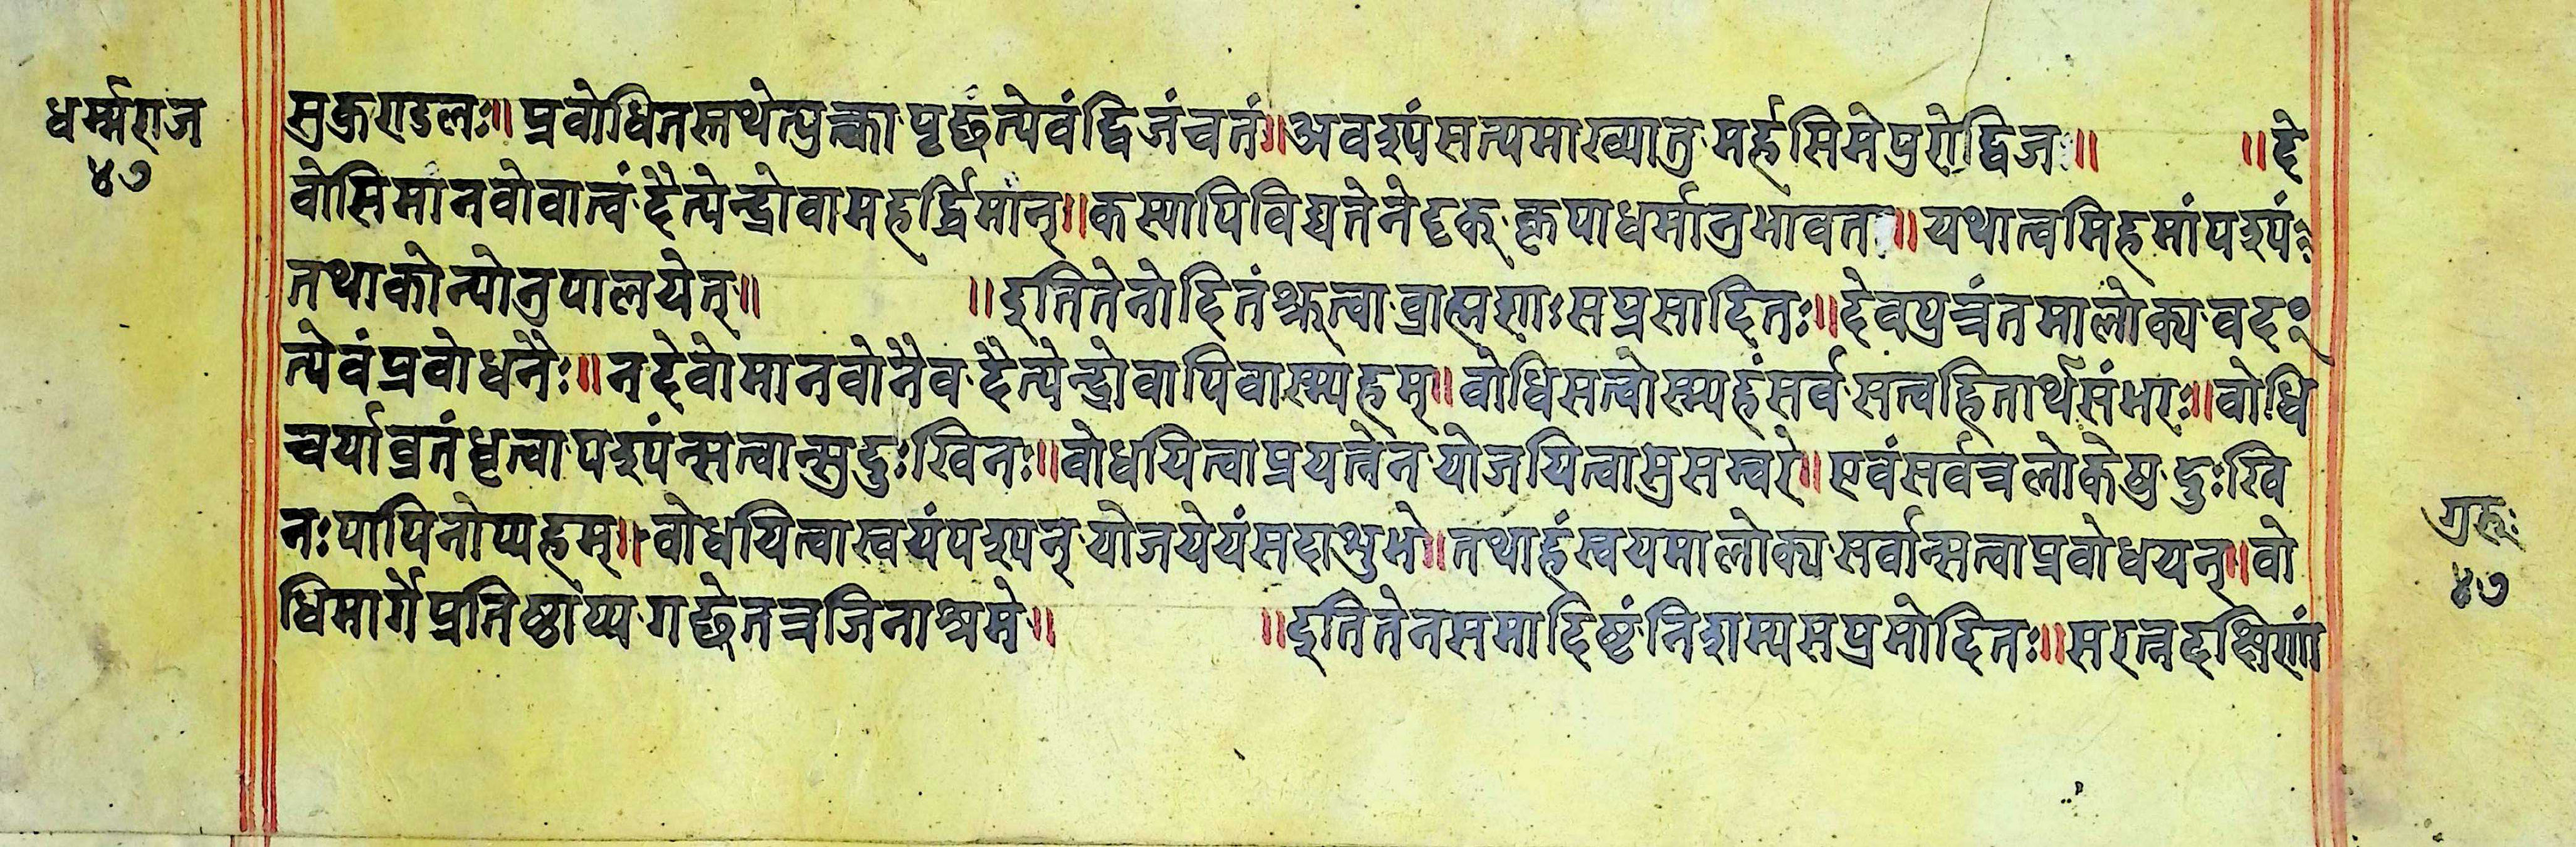 धर्म्मराज
४७
सुकुराडलः॥ प्रवोधितस्तथेत्युत्का पृछत्येवंद्विजंचतं॥ अवश्यंसत्यमाख्यातु मर्हसिमेपुरोद्विज॥ ॥दे
वोसिमानवोवात्वं दैत्येन्द्रोवामहर्द्धिमान्॥ कस्यापिविद्यतेनेदृक् कृपाधर्मानुभावत॥ यथात्वमिहमांपश्यं
तथाकोन्योनुपालयेत्॥ ॥इतितेनोदितंश्रुत्वा ब्राह्मणाः सप्रसादितः॥ देवपुत्रंतमालोक्य वद
त्येवंप्रवोधनैः॥ नदेवोमानवोनैव दैत्येन्द्रोवापिवास्म्यहम्॥ वोधिसत्वोस्म्यहंसर्व सत्वहितार्थसंभरः॥ वोधि
चर्याव्रतंधृत्वा पश्यंन्सत्वान्सुदुःखिनः॥ वोधयित्वाप्रयत्नेन योजयित्वासुसम्वरे॥ एवंसर्वत्रलोकेषु दुःखि
नःपापिनोप्यहम्॥ वोधयित्वास्वयंपश्यन् योजयेयंसदाशुभे॥ तथाहंस्वयमालोक्य सर्वान्सत्वाप्रवोधयन्॥ वो
धिमार्गेप्रतिष्ठाप्य गछेतत्रजिनाश्रमे॥ ॥इतितेनसमादिष्टं निशम्यसप्रमोदितः॥ सरत्नदक्षिणां
४७